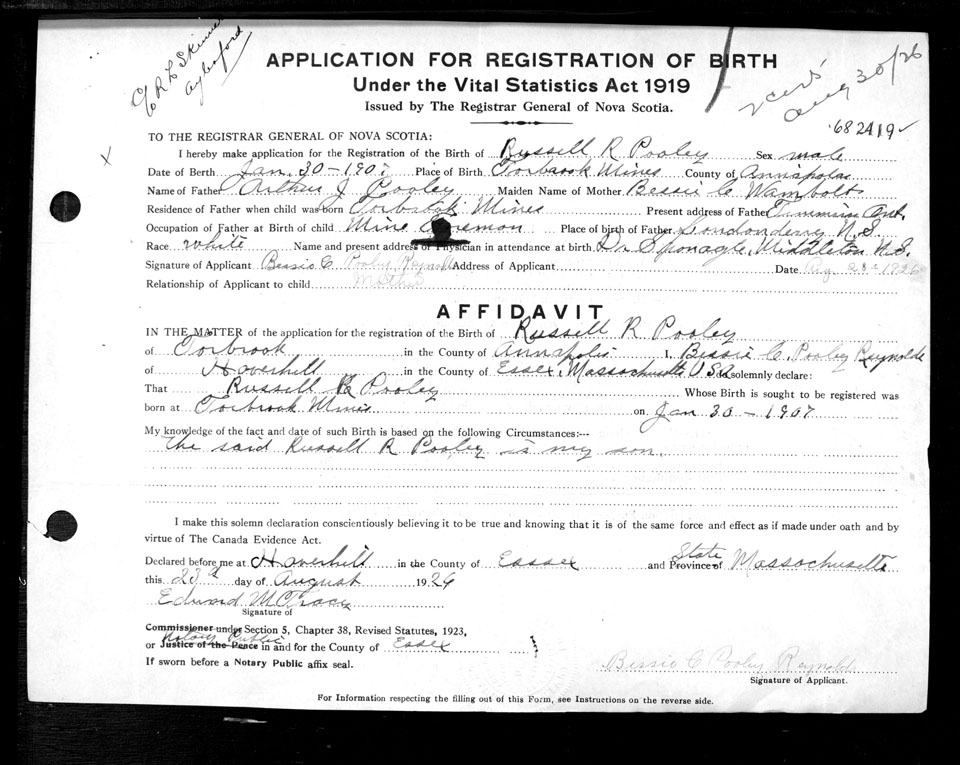 c/o R L Skinner
Aylesford
APPLICATION FOR REGISTRATION OF BIRTH
Under the Vital Statistics Act 1919
Issued by The Registrar General of Nova Scotia.
Aug 30/26
682419
TO THE REGISTRAR GENERAL OF NOVA SCOTIA:
x
I hereby make application for the Registration of the Birth of Russell R Pooley Sex male
Date of Birth Jan. 30-1907 Place of Birth Torbrook Mines County of Annapolis
Name of Father Arthur J Pooley Maiden Name of Mother Bessie C Wambolt
Residence of Father when child was born Torbrook Mines Present address of Father Timmins Ont.
Occupation of Father at Birth of child Mine Foreman Place of birth of Father Londonderry N.S
Race white Name and present address of Physician in attendance at birth Dr Sponagle, Middleton N.S.
Signature of Applicant Bessie C Pooley Reynolds Address of Applicant Date Aug. 23rd 1926
Relationship of Applicant to child Mother
AFFIDAVIT
IN THE MATTER of the application for the registration of the Birth of Russell R Pooley
of Torbrook in the County of Annapolis I, Bessie C. Pooley Reynolds
of Haverhill in the County of Essex, Massachusetts USA do solemnly declare:
That Russell R Pooley Whose Birth is sought to be registered was
born at Torbrook Mines on Jan 30-1907
My knowledge of the fact and date of such Birth is based on the following Circumstances:--
The said Russell R Pooley is my son.
I make this solemn declaration conscientiously believing it to be true and knowing that it is of the same force and effect as if made under oath and by
virtue of The Canada Evidence Act.
Declared before me at Haverhill in the County of Essex and Province of State Massachusetts
this 23d day of August 1926
Edward McTracy
Signature of
Commissioner under Section 5, Chapter 38, Revised Statutes, 1923,
Notary Public
or Justice of the Peace in and for the County of Essex
If sworn before a Notary Public affix seal.
Bessie C Pooley Reynolds
Signature of Applicant.
For Information respecting the filling out of this Form, see Instructions on the reverse side.